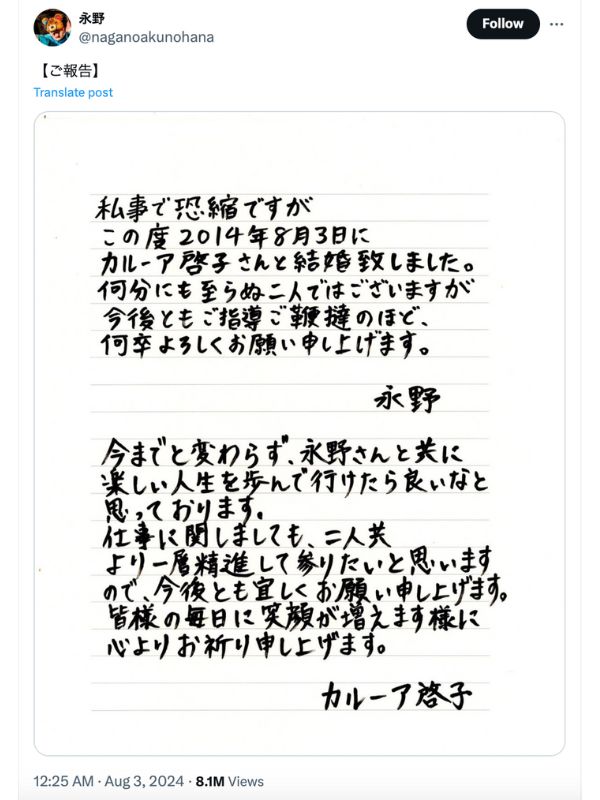 永野
@naganoakunohana
Follow
【ご報告】
Translate post
私事で恐縮ですが
この度2014年8月3日に
カルーア啓子さんと結婚致しました。
何分にも至らぬ二人ではございますが
今後ともご指導ご鞭撻のほど、
何卒よろしくお願い申し上げます。
永野
今までと変わらず、永野さんと共に
楽しい人生を歩んで行けたら良いなと
思っております。
仕事に関しましても、二人共
より一層精進して参りたいと思います
ので、今後とも宜しくお願い申し上げます。
皆様の毎日に笑顔が増えます様に
心よりお祈り申し上げます。
カルーア啓子
12:25 AM · Aug 3, 2024 · 8.1M Views